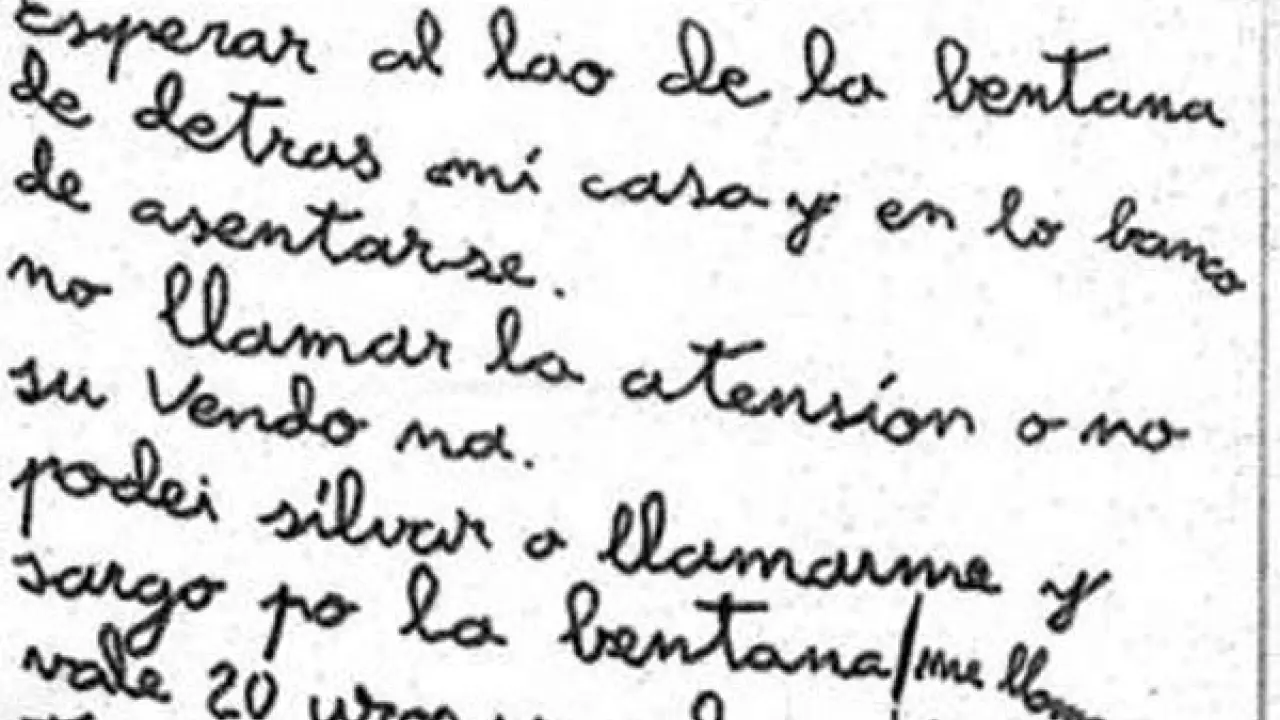 esperar al lao de la bentana
de detras mi casa y en lo banco
de asentarse.
no llamar la atensíon o no
su Vendo na.
podei sílvar o llamarme y
sargo po la bentana/me
vale 20